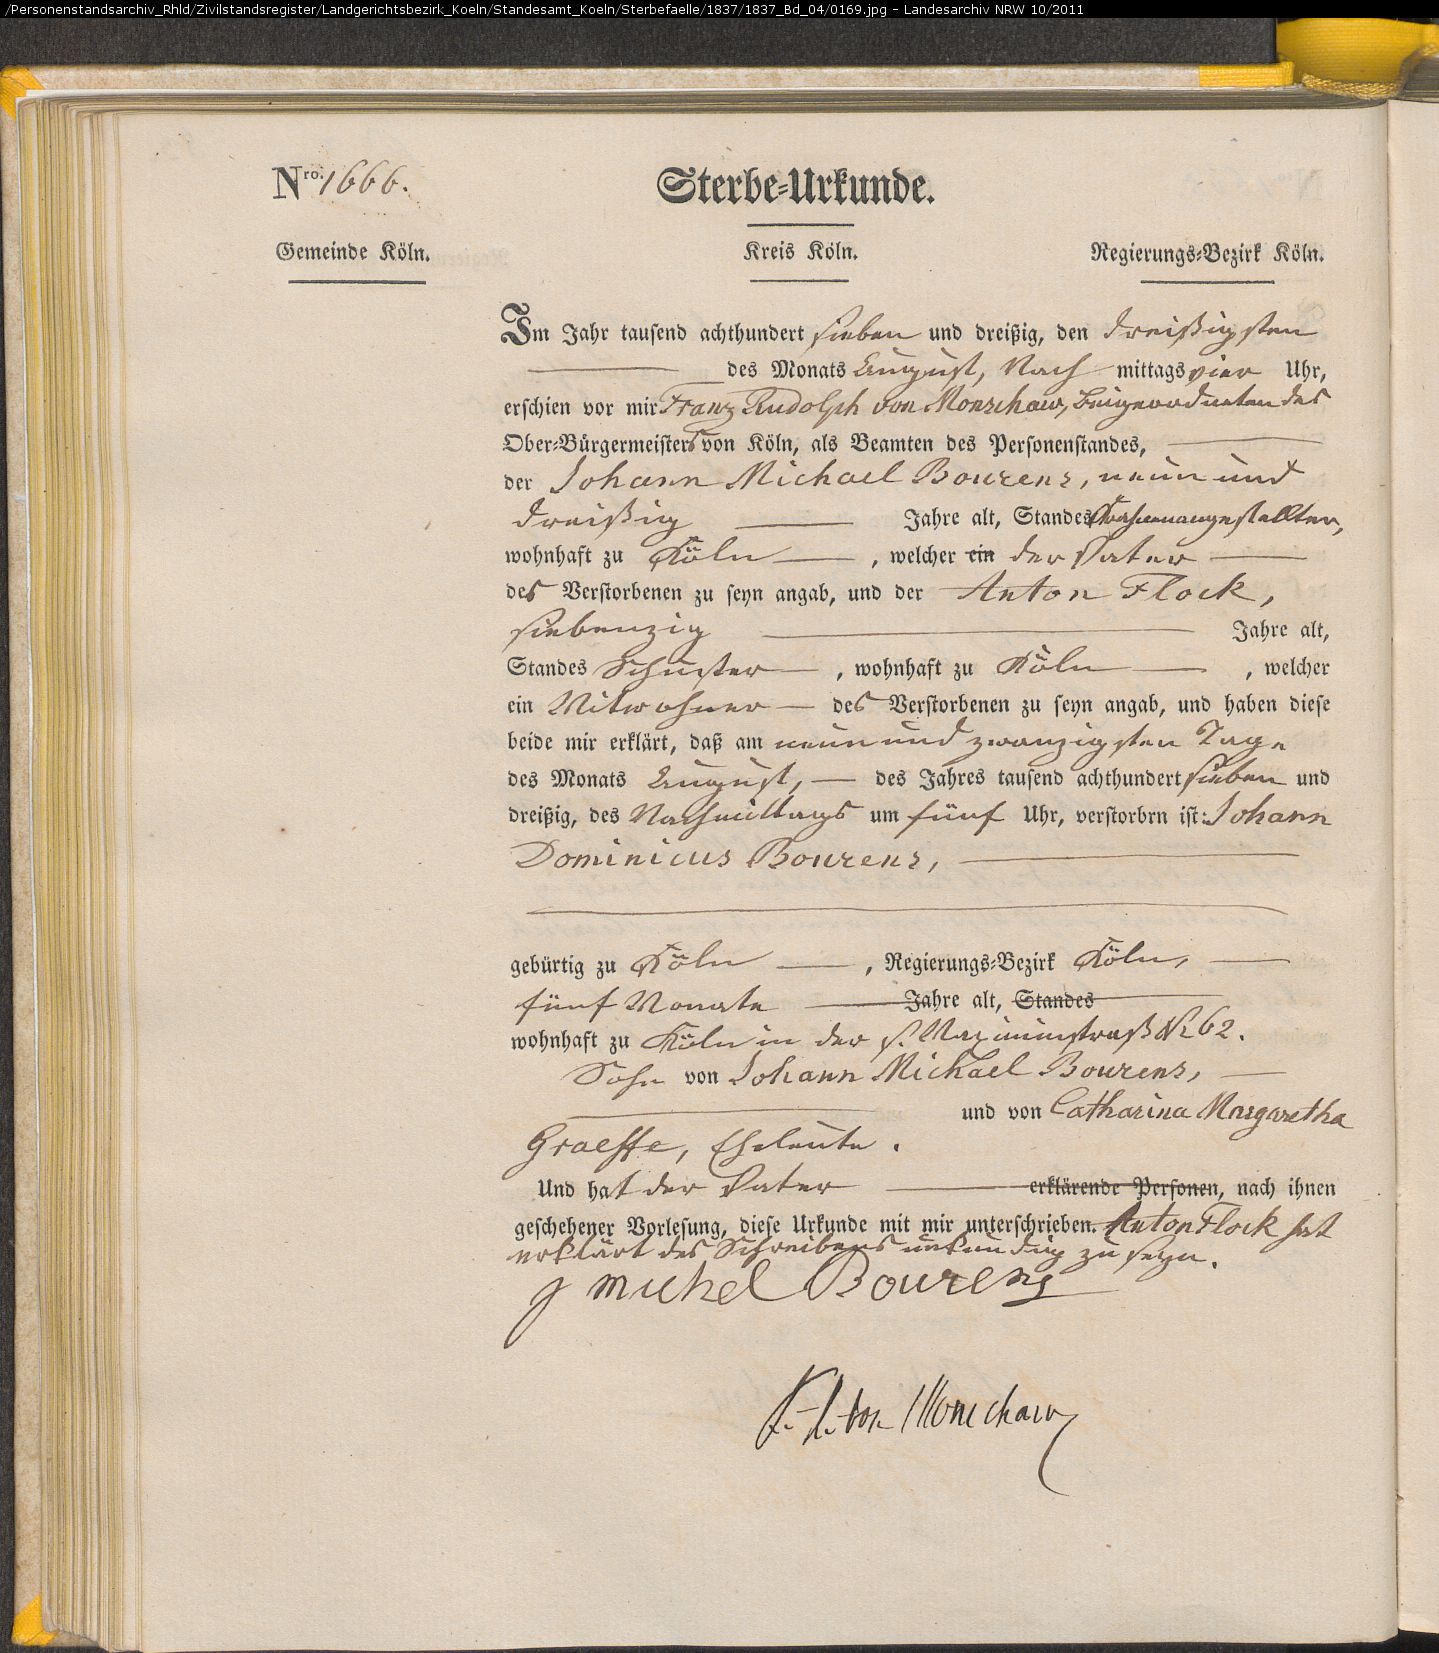 /Personenstandsarchiv_Rhld/Zivilstandsregister/Landgerichtsbezirk_Koeln/Standesamt_Koeln/Sterbefaelle/1837/1837_Bd_04/0169.jpg - Landesarchiv NRW 10/2011
Nro. 1666.
Sterbe-Urkunde.
Gemeinde Köln. Kreis Köln. Regierungs-Bezirk Köln.
Im Jahr tausend achthundert sieben und dreißig, den dreißigsten
des Monats August, Nach mittags vier Uhr,
erschien vor mir Franz Rudolph von Monschaw, Beigeordneten des
Ober-Bürgermeisters von Köln, als Beamten des Personenstandes,
der Johann Michael Bourens, neun und
dreißig Jahre alt, Standes
wohnhaft zu Köln, welcher ein der Vater
des Verstorbenen zu seyn angab, und der Anton Flock,
siebenzig Jahre alt,
Standes Schuster, wohnhaft zu Köln, welcher
ein Mitwohner des Verstorbenen zu seyn angab, und haben diese
beide mir erklärt, daß am neun und zwanzigsten Tage
des Monats August, des Jahres tausend achthundert sieben und
dreißig, des Nachmittags um fünf Uhr, verstorbrn ist: Johann
Dominicus Bourens,
gebürtig zu Köln, Regierungs-Bezirk Köln,
fünf Monate Jahre alt, Standes
wohnhaft zu Köln in der s. Maximinstraß № 62.
Sohn von Johann Michael Bourens,
und von Catharina Margaretha
Graeffe, Eheleute.
Und hat der Vater erklärende Personen, nach ihnen
geschehener Vorlesung, diese Urkunde mit mir unterschrieben. Anton Flock hat
erklärt des Schreibens unkundig zu seyn.
J Michel Bourens
F. R. von Monschaw